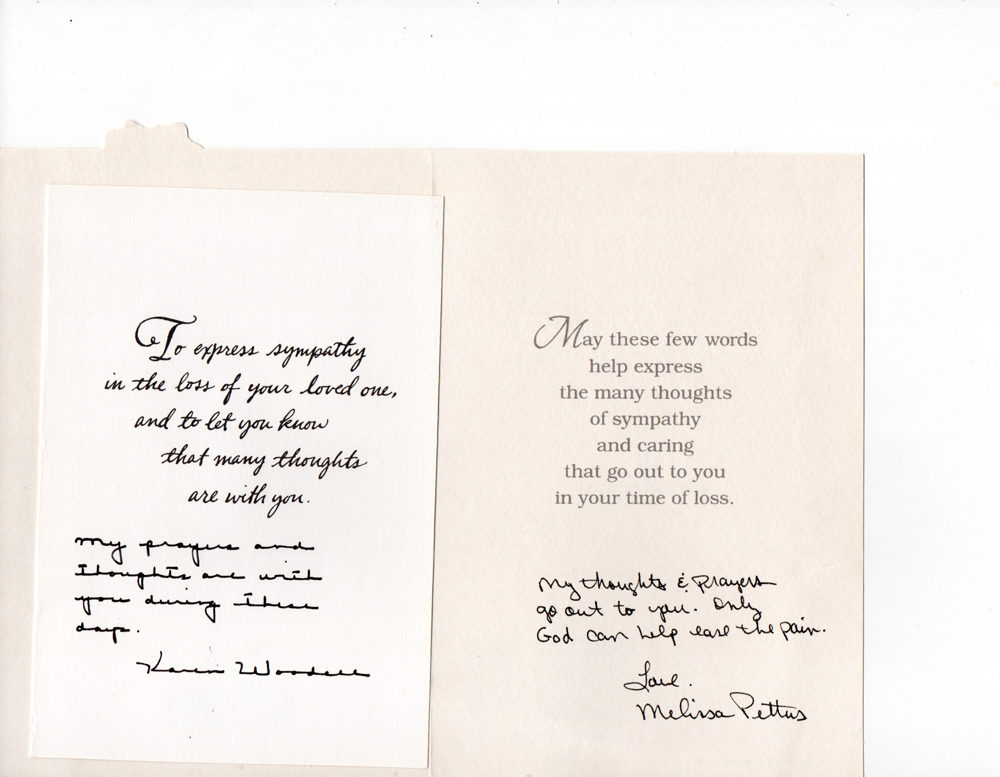 To express sympathy
in the loss of your loved one,
and to let you know
that many thoughts
are with you.
My prayers and
thoughts are with
you during these
days.
Karen Woodall
May these few words
help express
the many thoughts
of sympathy
and caring
that go out to you
in your time of loss.
My thoughts & Prayers
go out to you. Only
God can help ease the pain.
Love.
Melissa Pettus